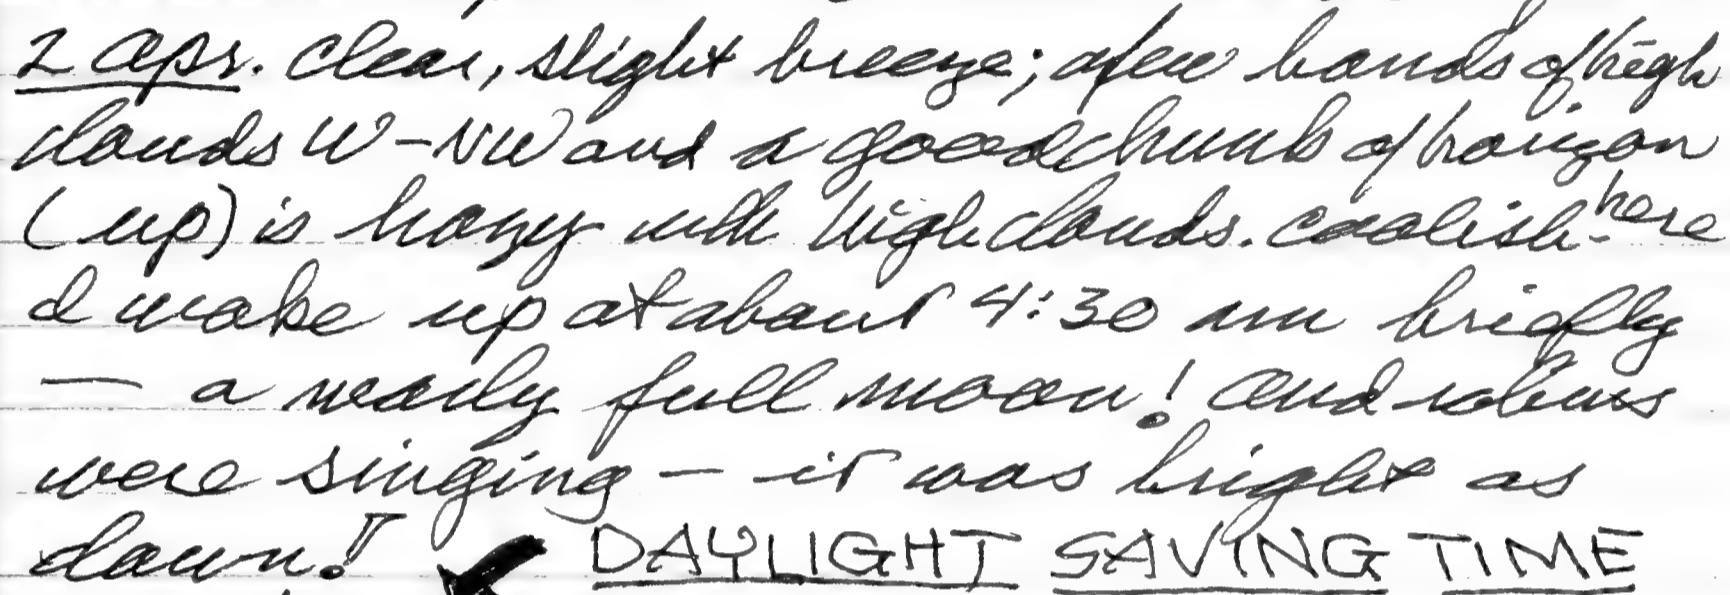 2 Apr. Clear, slight breeze; a few bands of high
clouds W-NW and a good chunk of horizon
(up) is hazy with high clouds. Coolish-here
I woke up at about 4:30 am briefly
— a nearly full moon! And robins
were singing — it was bright as
dawn! ✔ DAYLIGHT SAVING TIME